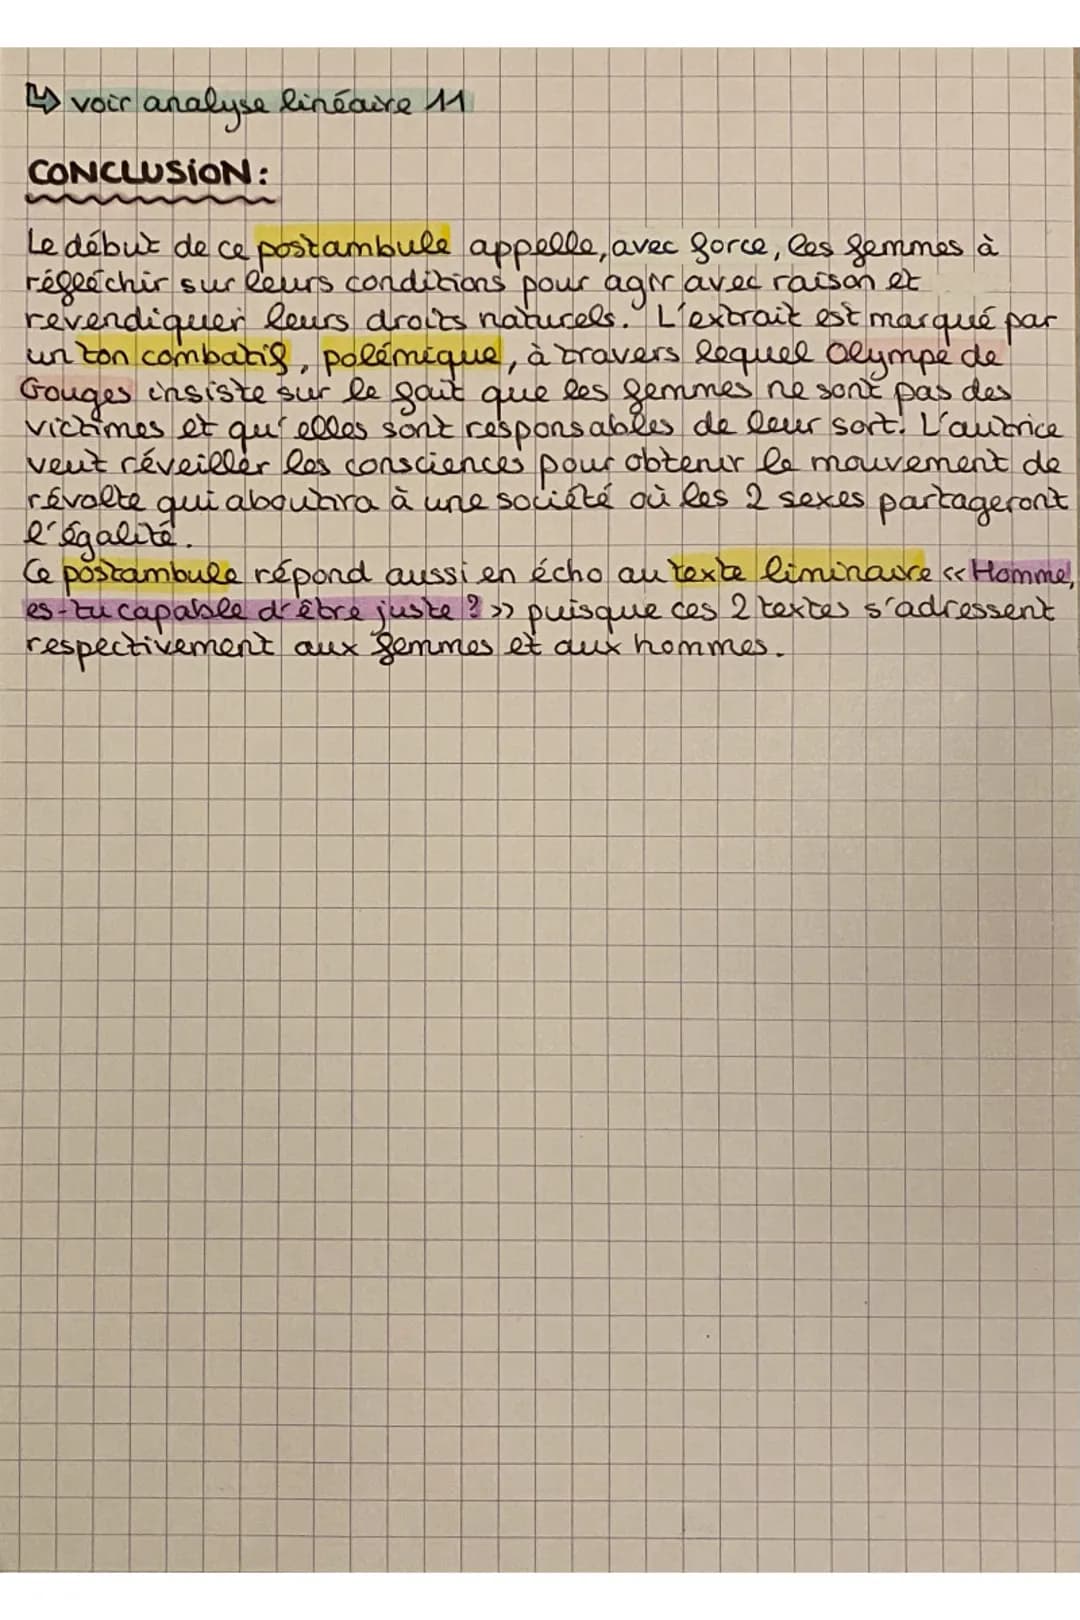 ↳ voir analyse linéaire 11
CONCLUSION:
Le début de ce postambule appelle, avec force, les femmes à
réfléchir sur leurs conditions pour agir avec raison et
revendiquer leurs droits naturels. L'extrait est marqué par
un ton combatif, polémique, à travers lequel Olympe de
Gouges insiste sur le fait que les femmes ne sont pas des
victimes et qu'elles sont responsables de leur sort. L'autrice
veut réveiller les consciences pour obtenir le mouvement de
révolte qui aboutira à une société où les 2 sexes partageront
l'égalité.
Ce postambule répond aussi en écho au texte liminaire << Homme,
es-tu capable d'être juste ? >> puisque ces 2 textes s'adressent
respectivement aux femmes et aux hommes.